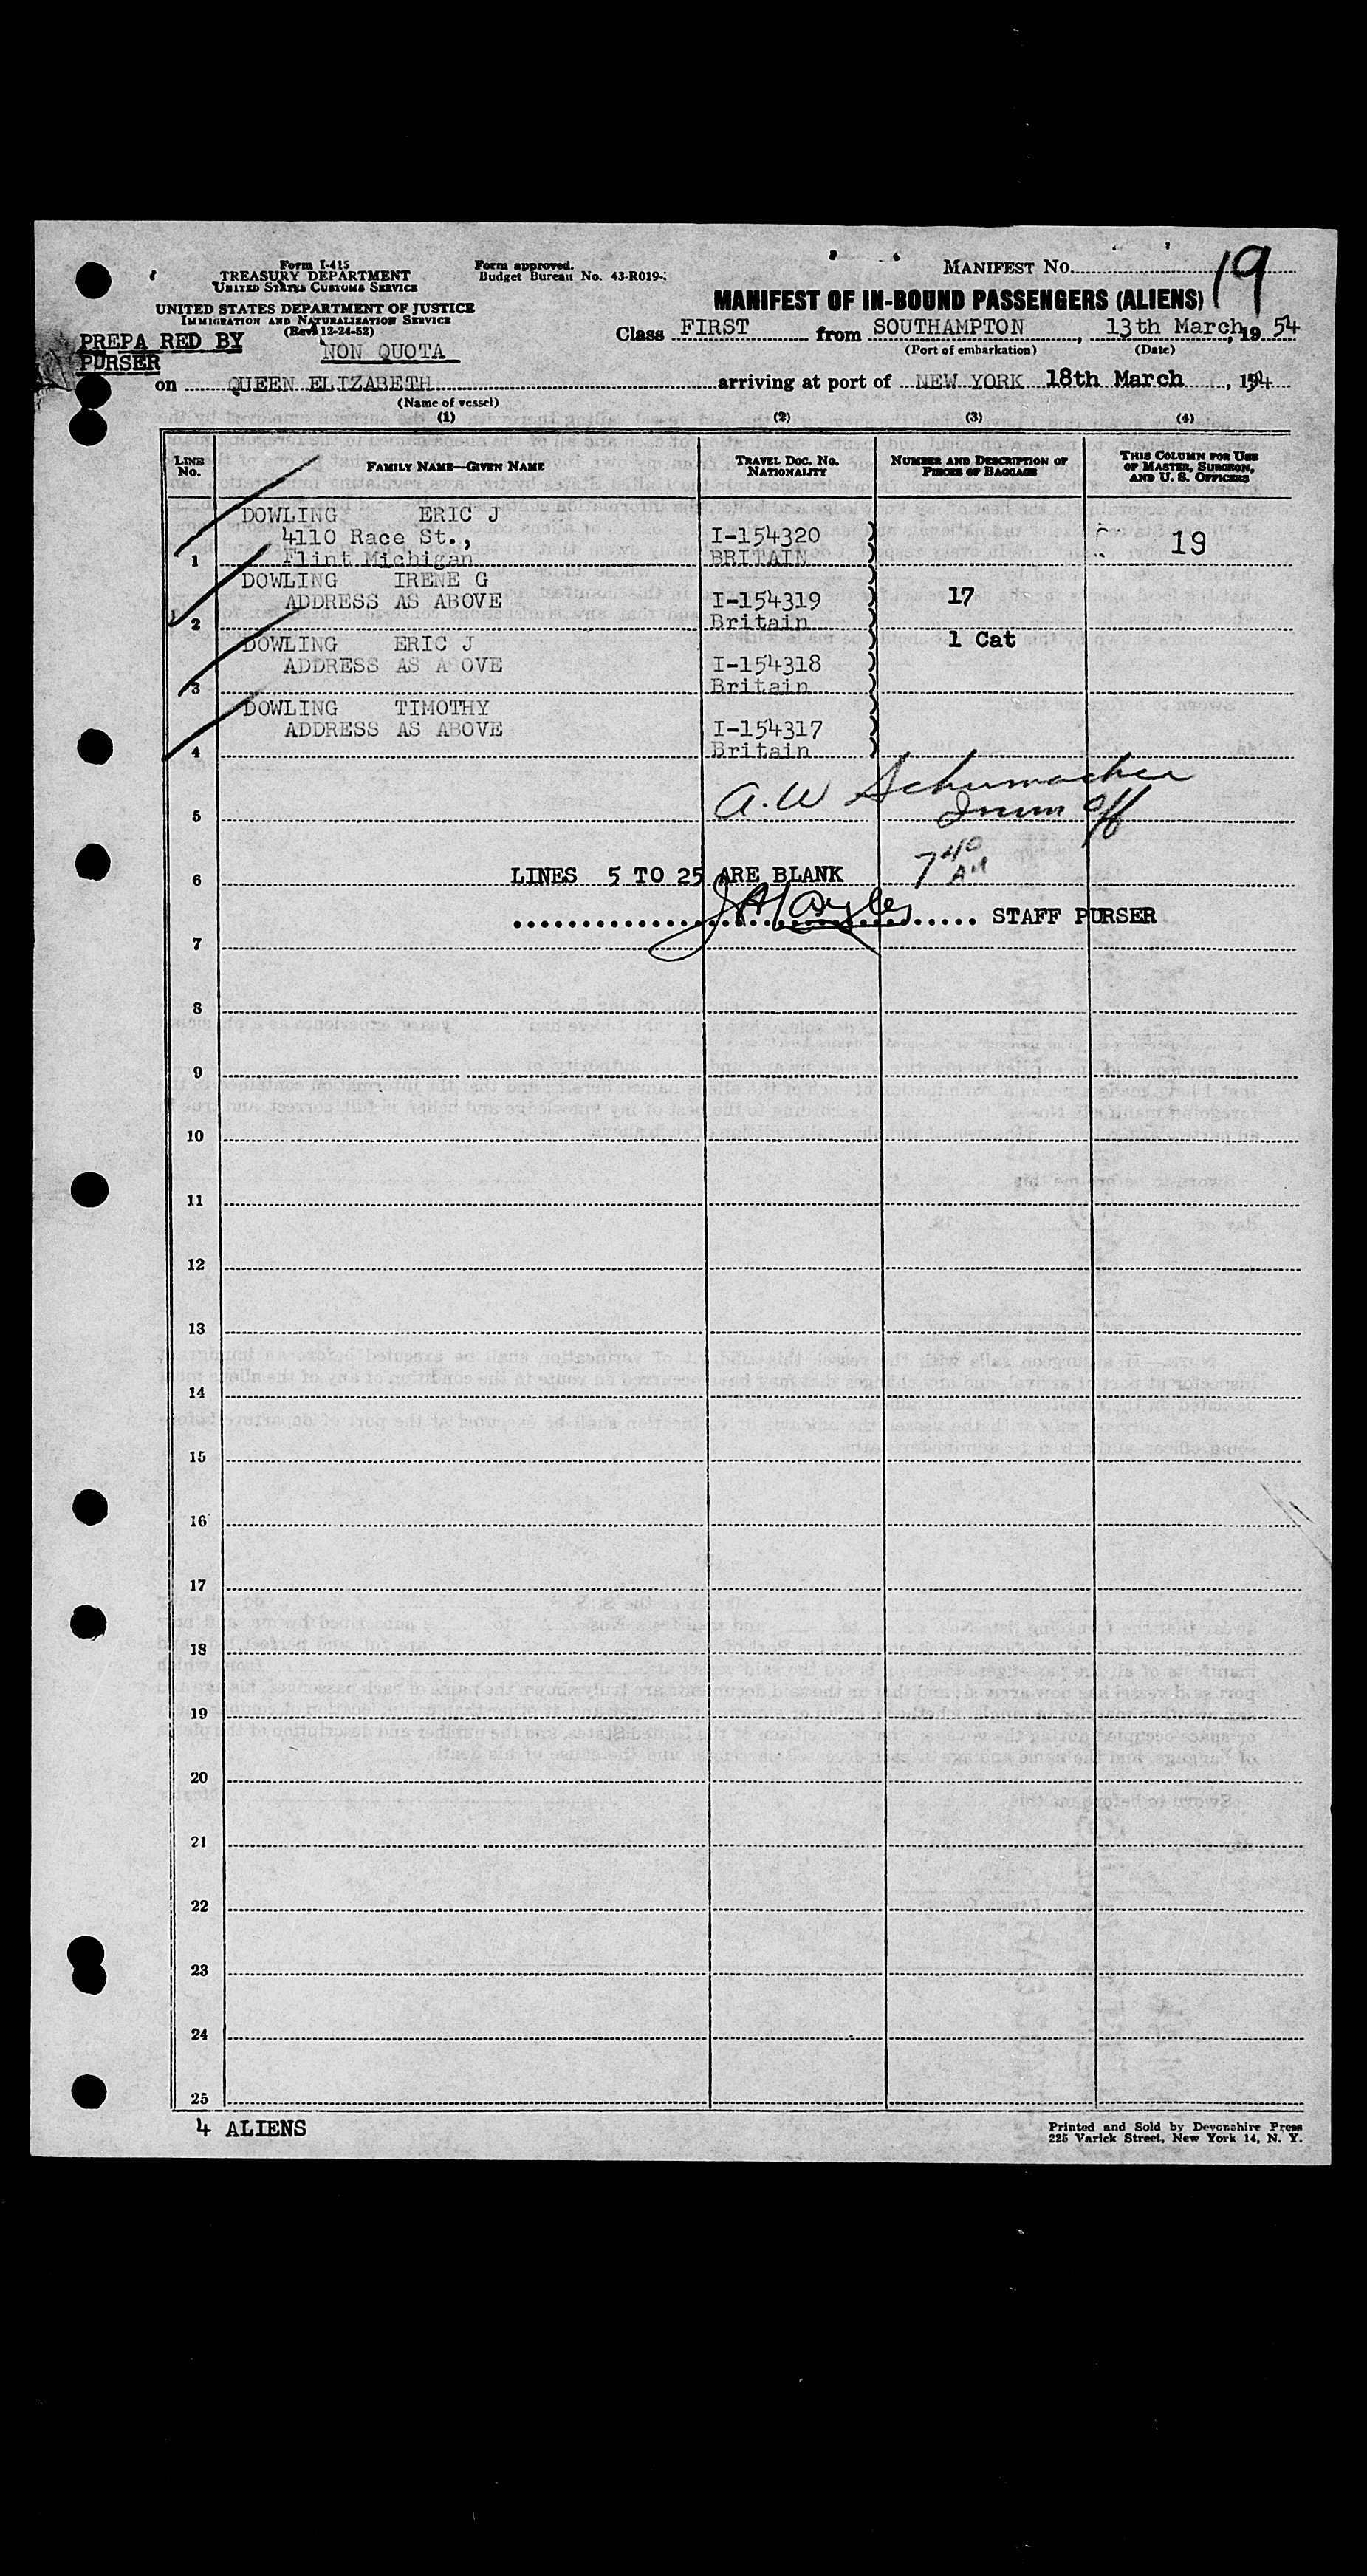 Form I-415
TREASURY DEPARTMENT
UNITED STATES CUSTOMS SERVICE
UNITED STATES DEPARTMENT OF JUSTICE
IMMIGRATION AND NATURALIZATION SERVICE
(Rev. 12-24-52)
Form approved.
Budget Bureau No. 43-R019-
MANIFEST No. 19
MANIFEST OF IN-BOUND PASSENGERS (ALIENS)
PREPA RED BY
PURSER
NON QUOTA
Class FIRST from SOUTHAMPTON, 13th March, 19 54
(Port of embarkation) (Date)
on QUEEN ELIZABETH arriving at port of NEW YORK 18th March, 1954
(Name of vessel)
(1) (2) (3) (4)
LINE No. FAMILY NAME—GIVEN NAME TRAVEL DOC. No. NATIONALITY NUMBER AND DESCRIPTION OF PIECES OF BAGGAGE THIS COLUMN FOR USE OF MASTER, SURGEON, AND U. S. OFFICERS
DOWLING ERIC J
4110 Race St., I-154320 ) 19
1 Flint Michigan BRITAIN )
DOWLING IRENE G )
ADDRESS AS ABOVE I-154319 ) 17
2 Britain )
DOWLING ERIC J ) 1 Cat
ADDRESS AS A OVE I-154318 )
3 Britain )
DOWLING TIMOTHY )
ADDRESS AS ABOVE I-154317 )
4 Britain )
A.W Schumacher
5 Imm Off
7 40 AM
6 LINES 5 TO 25 ARE BLANK
STAFF PURSER
7
8
9
10
11
12
13
14
15
16
17
18
19
20
21
22
23
24
25
4 ALIENS
Printed and Sold by Devonshire Press
225 Varick Street, New York 14, N. Y.